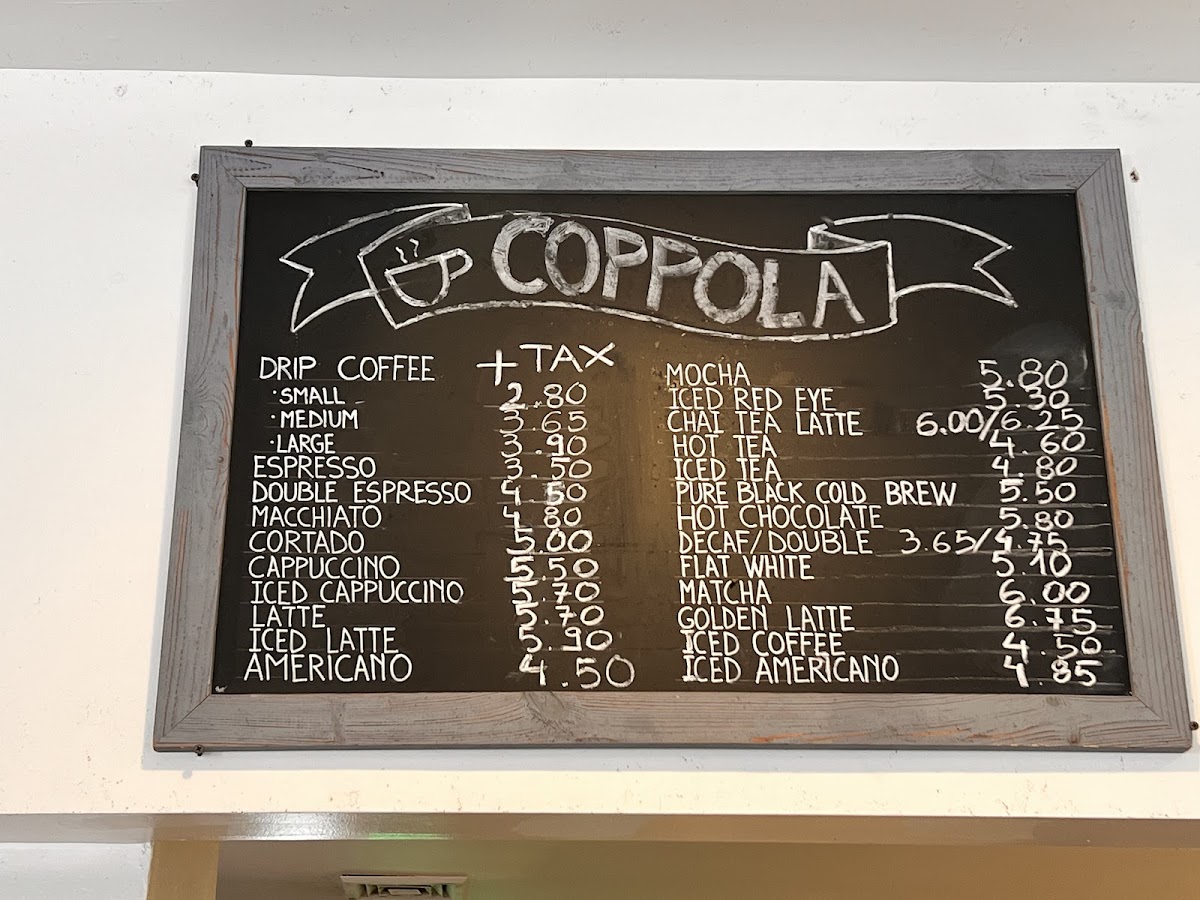 COPPOLA
DRIP COFFEE + TAX
· SMALL 2.80
· MEDIUM 3.65
· LARGE 3.90
ESPRESSO 3.50
DOUBLE ESPRESSO 4.50
MACCHIATO 4.80
CORTADO 5.00
CAPPUCCINO 5.50
ICED CAPPUCCINO 5.70
LATTE 5.70
ICED LATTE 5.90
AMERICANO 4.50
MOCHA 5.80
ICED RED EYE 5.30
CHAI TEA LATTE 6.00/6.25
HOT TEA 4.60
ICED TEA 4.80
PURE BLACK COLD BREW 5.50
HOT CHOCOLATE 5.80
DECAF/DOUBLE 3.65/4.75
FLAT WHITE 5.10
MATCHA 6.00
GOLDEN LATTE 6.75
ICED COFFEE 4.50
ICED AMERICANO 4.85